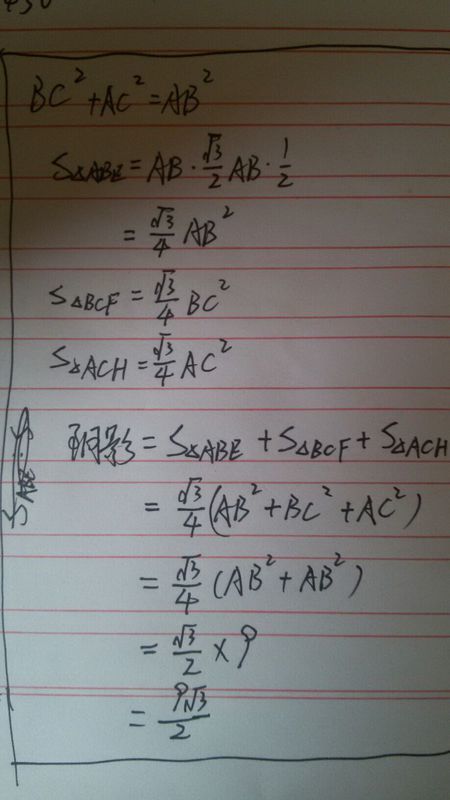 BC²+AC²=AB²
S△ABE=AB·√3/2AB·1/2
=√3/4AB²
S△BCF=√3/4BC²
S△ACH=√3/4AC²
阴影=S△ABE+S△BCF+S△ACH
=√3/4(AB²+BC²+AC²)
=√3/4(AB²+AB²)
=√3/2×9
=9√3/2